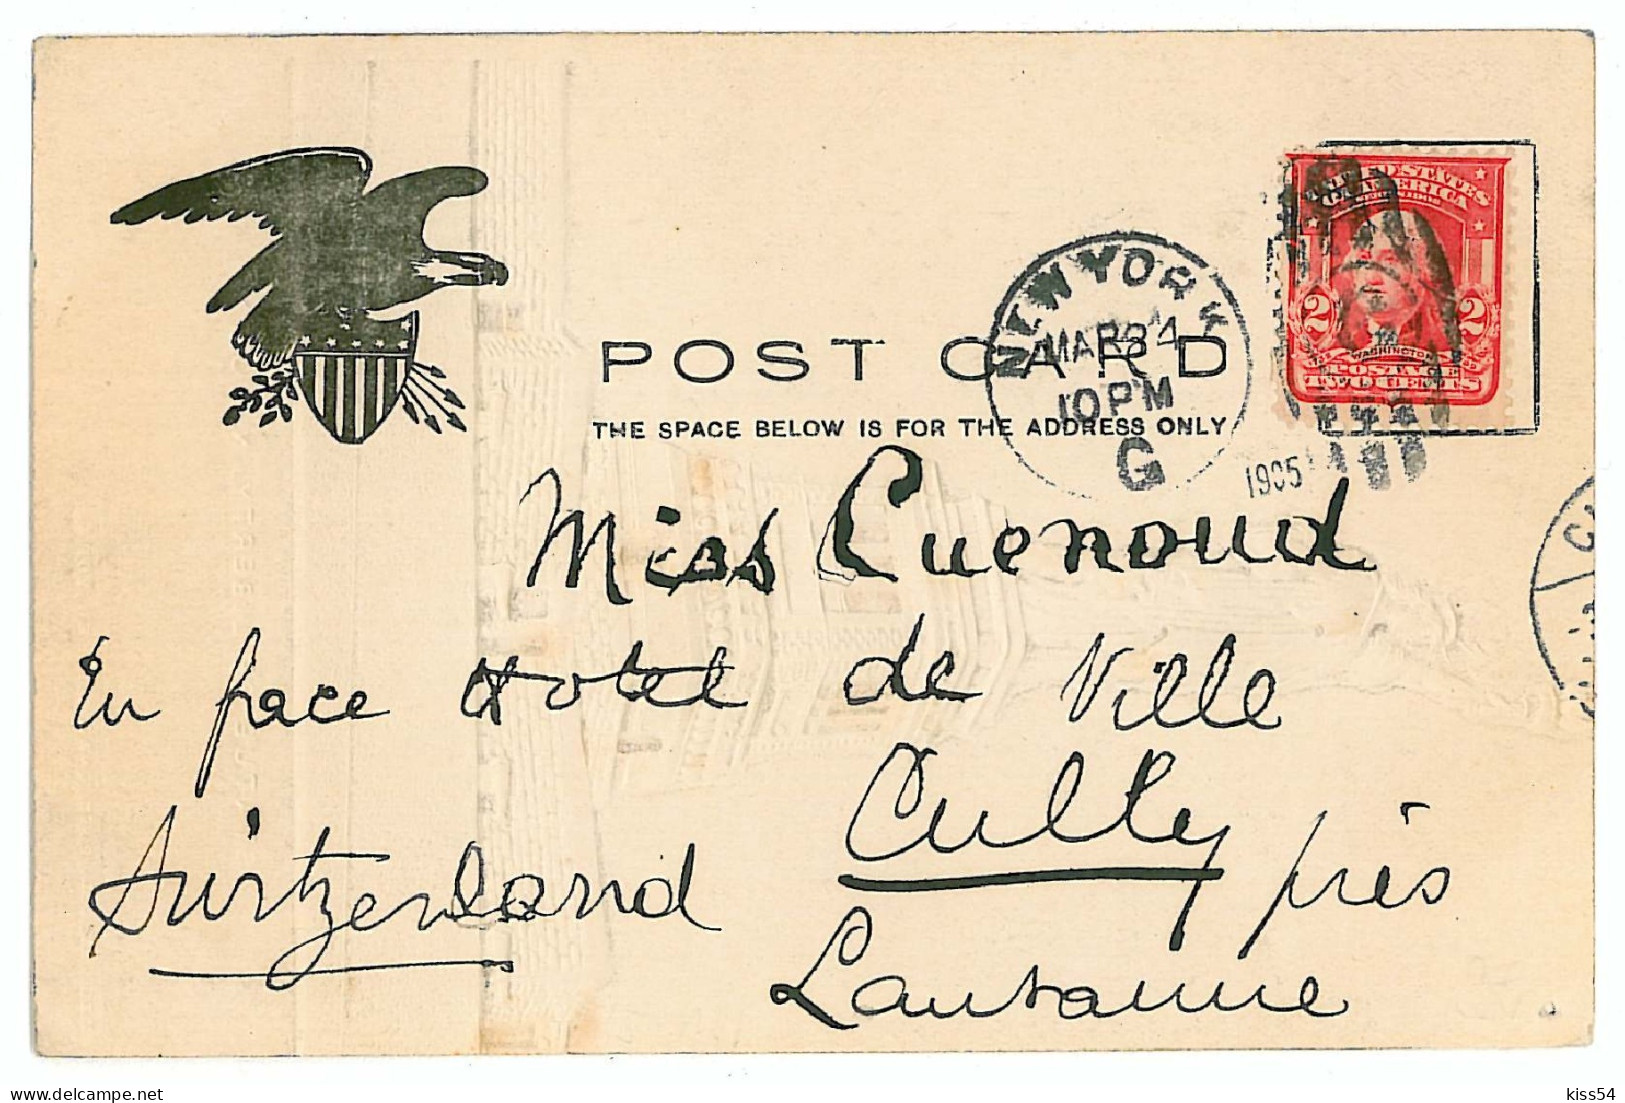 POST CARD
THE SPACE BELOW IS FOR THE ADDRESS ONLY
NEW YORK
MAR 24
10 PM
G
1905
UNITED STATES
OF AMERICA
2 2
WASHINGTON
POSTAGE
TWO CENTS
Miss Cuenoud
En face Hotel de Ville
Cully près
Switzerland
Lausanne
kiss54